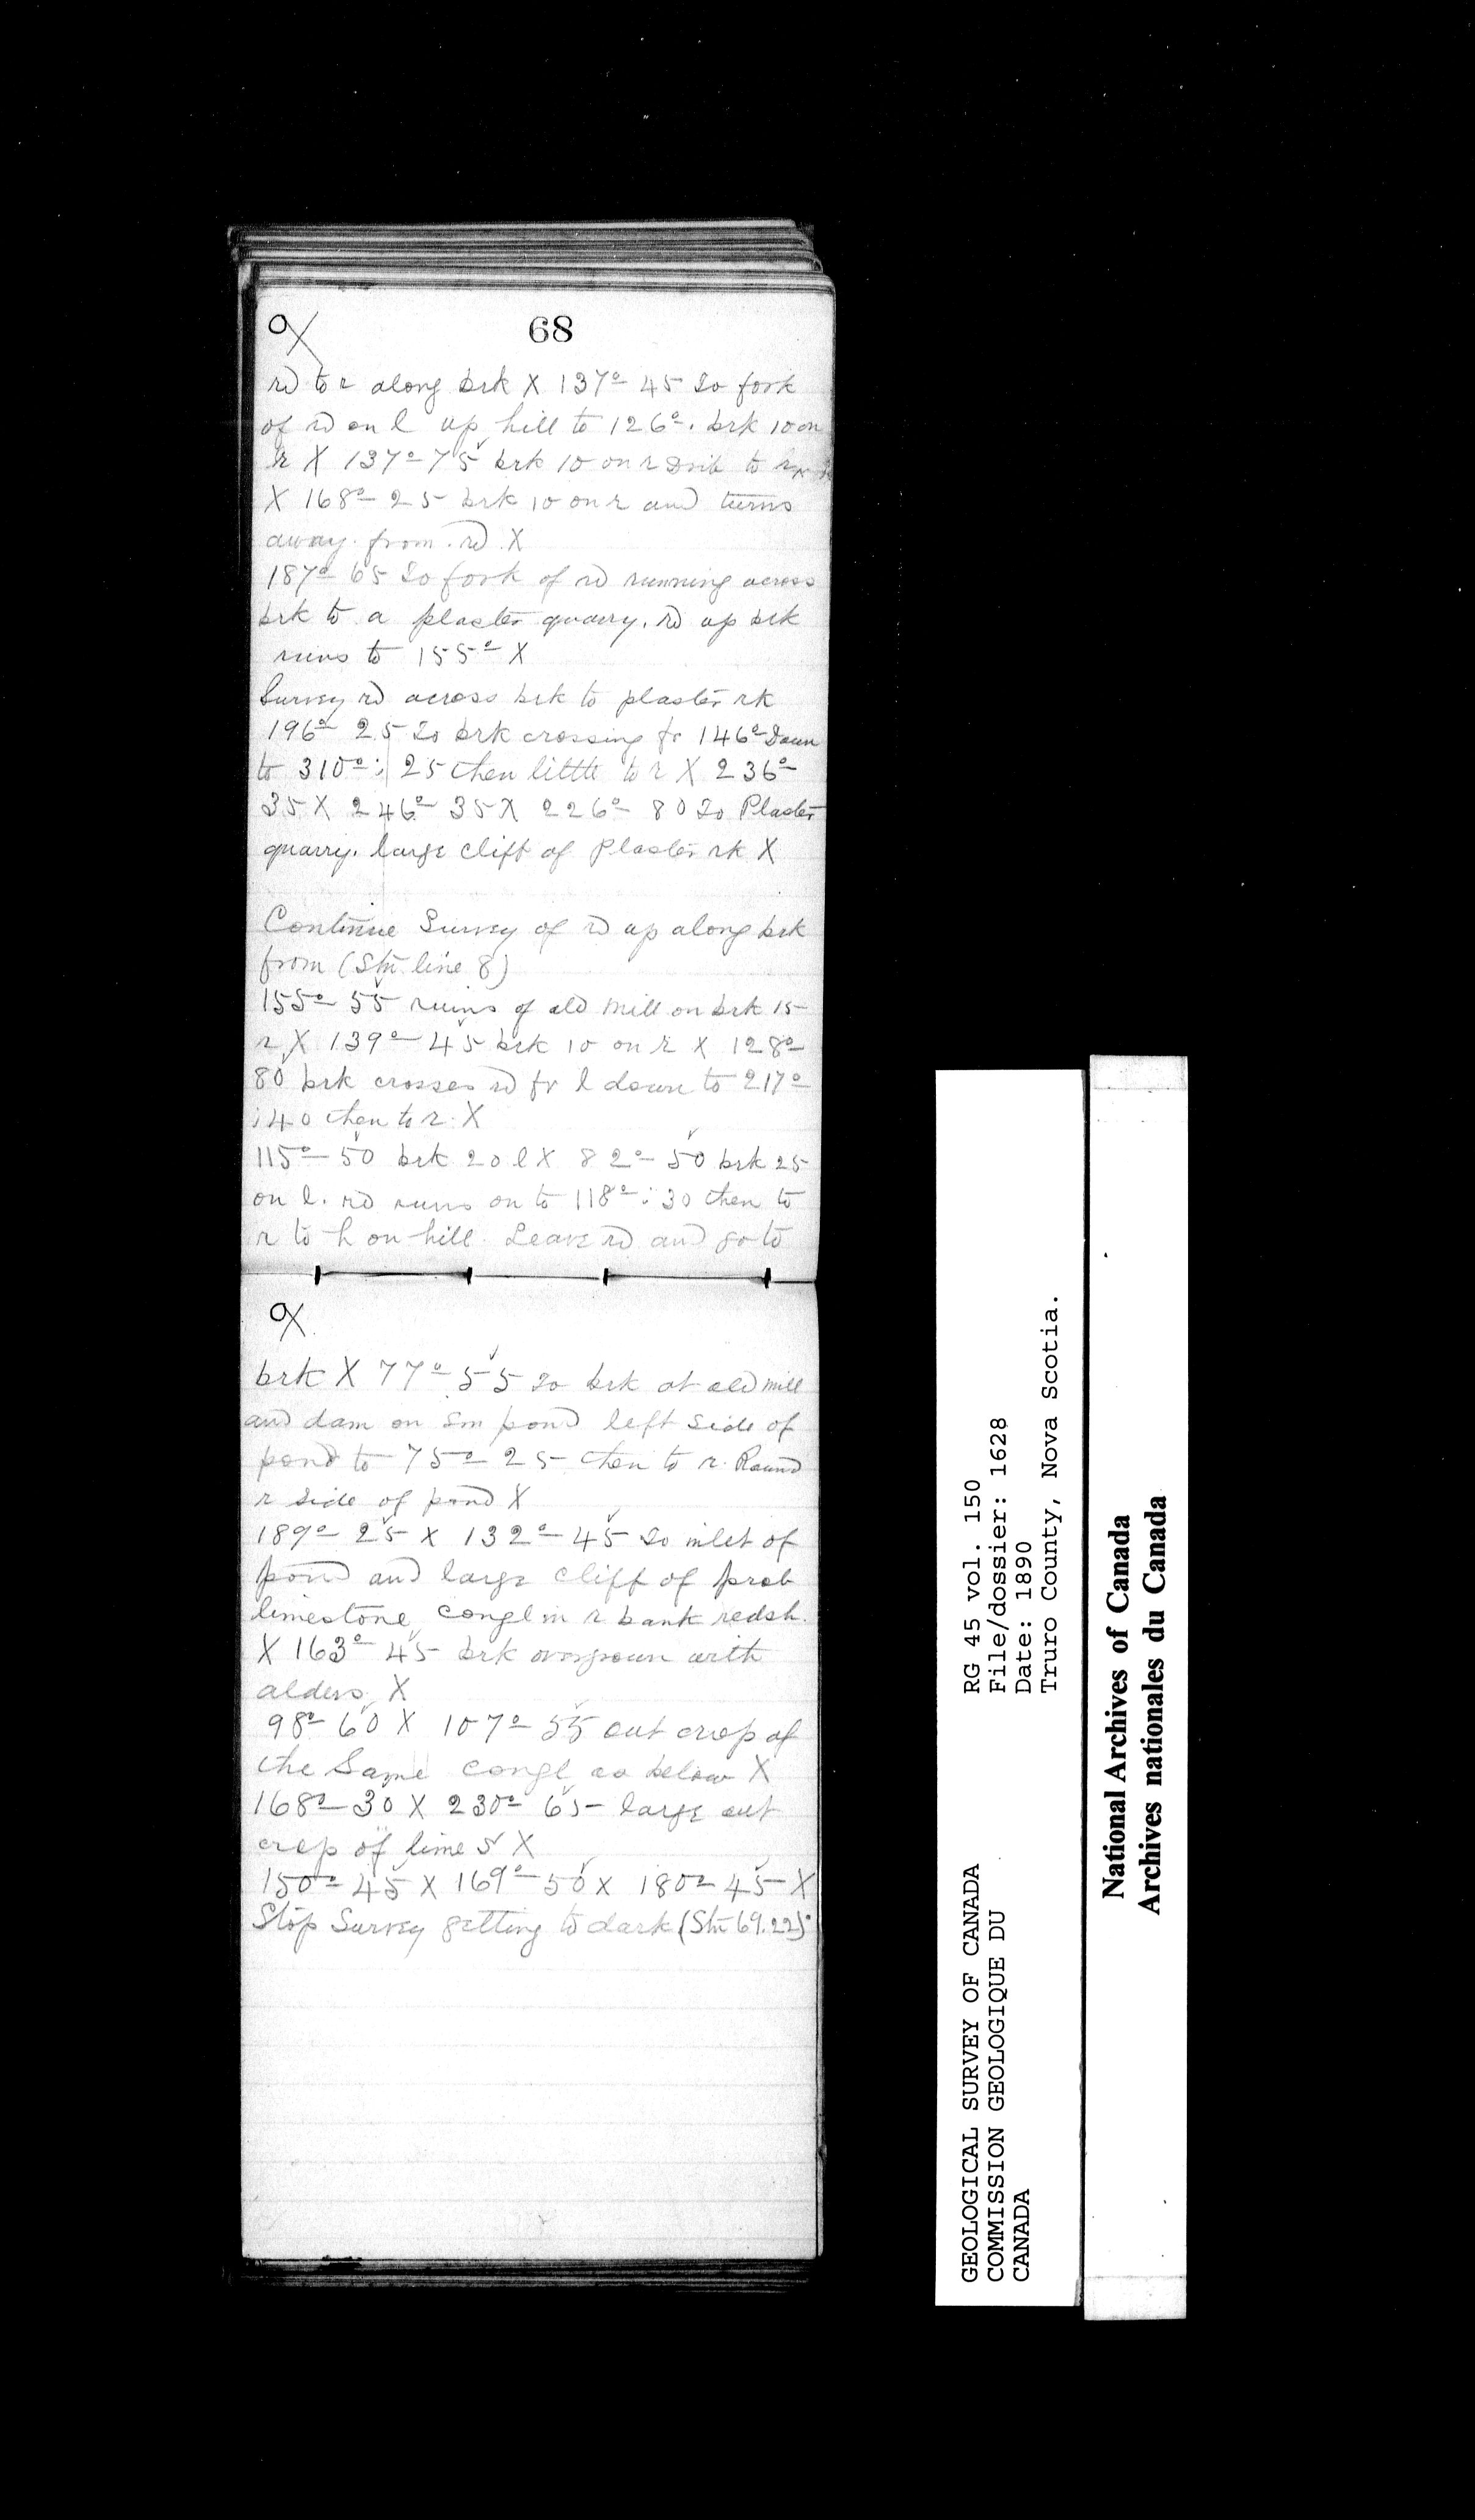 68
rd to r along brk X 137° 45 So fork
of rd on l up hill to 126°. brk 10 on
r X 137° 75 brk 10 on r to
X 168° 25 brk 10 on r and turns
away from rd X
187° 65 So fork of rd running across
brk to a plaster quarry. rd up brk
runs to 155° X
Survey rd across brk to plaster rk
196° 25 So brk crossing fr 146° Down
to 310° : 25 then little to r X 236°
35 X 246° 35 X 226° 80 So Plaster
quarry. large cliff of Plaster rk X
Continue Survey of rd up along brk
from (Stn line 8)
155° 55 ruins of old mill on brk 15
r X 139° 45 brk 10 on r X 128°
80 brk crosses rd fr l down to 217°
: 40 then to r. X
115° 50 brk 20 l X 82° 50 brk 25
on l. rd runs on to 118° : 30 then to
r to h on hill. Leave rd and go to
brk X 77° 55 So brk at old mill
and dam on sm pond left side of
pond to 75° 25 then to r. Round
r side of pond X
189° 25 X 132° 45 So inlet of
pond and large cliff of prob
limestone congl in r bank redsh.
X 163° 45 brk overgrown with
alders X
98° 60 X 107° 55 out crop of
the Same congl as below X
168° 30 X 230° 65 large out
crop of lime S X
150° 45 X 169° 50 X 180° 45 X
Stop Survey getting to dark (Stn 69.22)
GEOLOGICAL SURVEY OF CANADA
COMMISSION GEOLOGIQUE DU
CANADA
RG 45 vol. 150
File/dossier: 1628
Date: 1890
Truro County, Nova Scotia.
National Archives of Canada
Archives nationales du Canada